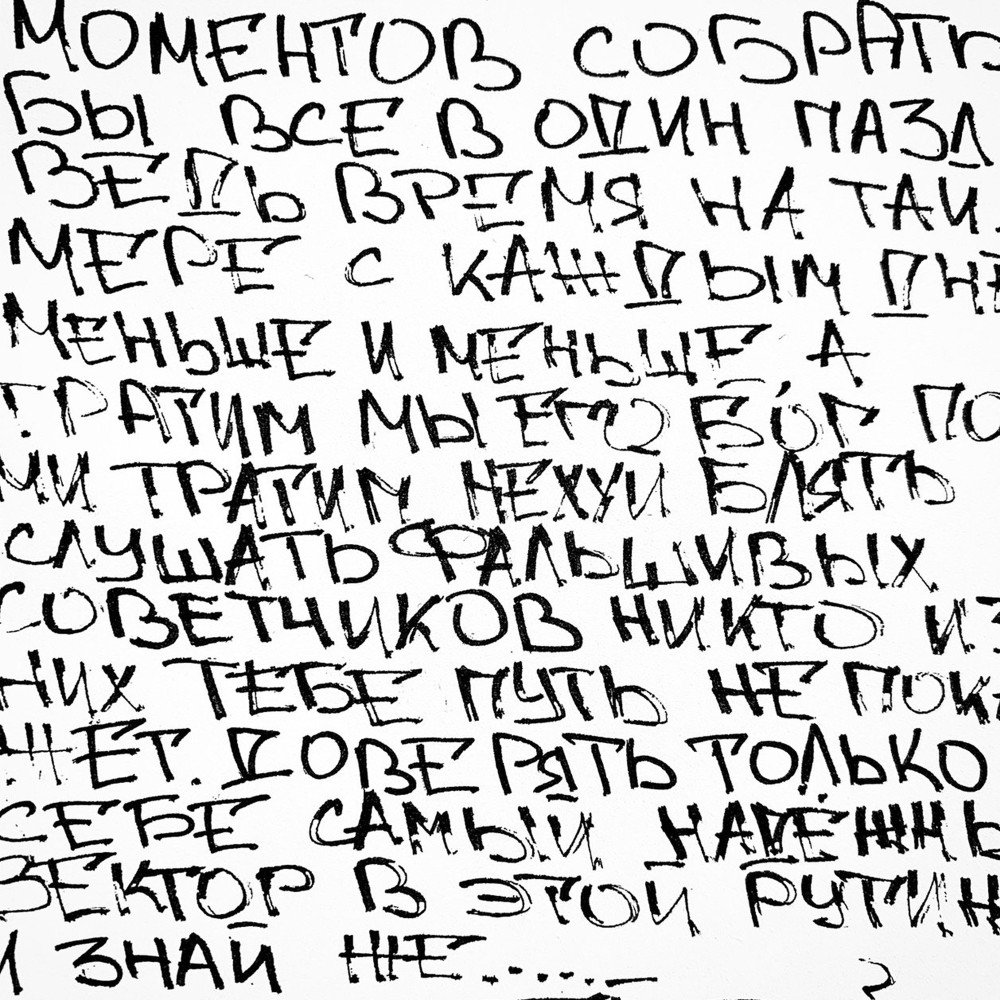 МОМЕНТОВ СОБРАТЬ
БЫ ВСЕ В ОДИН ПАЗЛ
ВЕДЬ ВРЕМЯ НА ТАЙ
МЕРЕ С КАЖДЫМ ДНЁ
МЕНЬШЕ И МЕНЬШЕ А
ТРАТИМ МЫ ЕГО БОГ ПО
МИ ТРАТИМ НЕХУЙ БЛЯТЬ
СЛУШАТЬ ФАЛЬШИВЫХ
СОВЕТЧИКОВ НИКТО ИЗ
НИХ ТЕБЕ ПУТЬ НЕ ПОКА
ЖЕТ. ДОВЕРЯТЬ ТОЛЬКО
СЕБЕ САМЫЙ НАДЁЖНЫ
ВЕКТОР В ЭТОЙ РУТИН
И ЗНАЙ ЖЕ.....